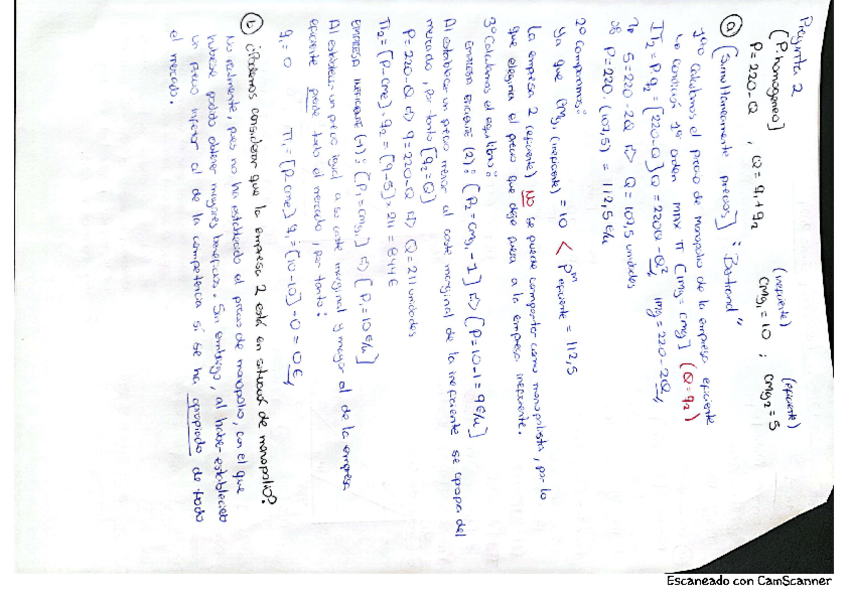 Pregunta 2
[P. homogéneo]
P = 220 - Q , Q = q1 + q2
(ineficiente) (eficiente)
CMg1 = 10 ; CMg2 = 5
a) [Simultáneamente precios] : "Bertrand"
1º Calculamos el precio de monopolio de la empresa eficiente
condición 1er orden max π [IMg = CMg] (Q = q2)
IT2 = P·q2 = [220-Q]Q = 220Q - Q² IMg = 220 - 2Q
5 = 220 - 2Q ⇒ Q = 107,5 unidades
P = 220 - (107,5) = 112,5 €/u
2º Comparamos:
ya que CMg1 (ineficiente) = 10 < P^m eficiente = 112,5
La empresa 2 (eficiente) NO se puede comportar como monopolista, por lo
que elegirá el precio que deje fuera a la empresa ineficiente.
3º Calculamos el equilibrio:
EMPRESA EFICIENTE (2): [P2 = CMg1 - 1] ⇒ [P = 10 - 1 = 9 €/u]
Al establecer un precio menor al coste marginal de la ineficiente se apropia del
mercado, por tanto [q2 = Q]
P = 220 - Q ⇒ 9 = 220 - Q ⇒ Q = 211 unidades
π2 = [P - CMe] · q2 = [9 - 5] · 211 = 844 €
EMPRESA INEFICIENTE (1): [P1 = CMg1] ⇒ [P1 = 10 €/u]
Al establecer un precio igual a su coste marginal y mayor al de la empresa
eficiente pierde todo el mercado, por tanto:
q1 = 0 π1 = [P - CMe] q1 = [10 - 10] · 0 = 0 €
b) ¿Podemos considerar que la empresa 2 está en situación de monopolio?
No realmente, pues no ha establecido el precio de monopolio, con el que
hubiese podido obtener mayores beneficios. Sin embargo, al haber establecido
un precio inferior al de la competencia si se ha apropiado de todo
el mercado.
Escaneado con CamScanner